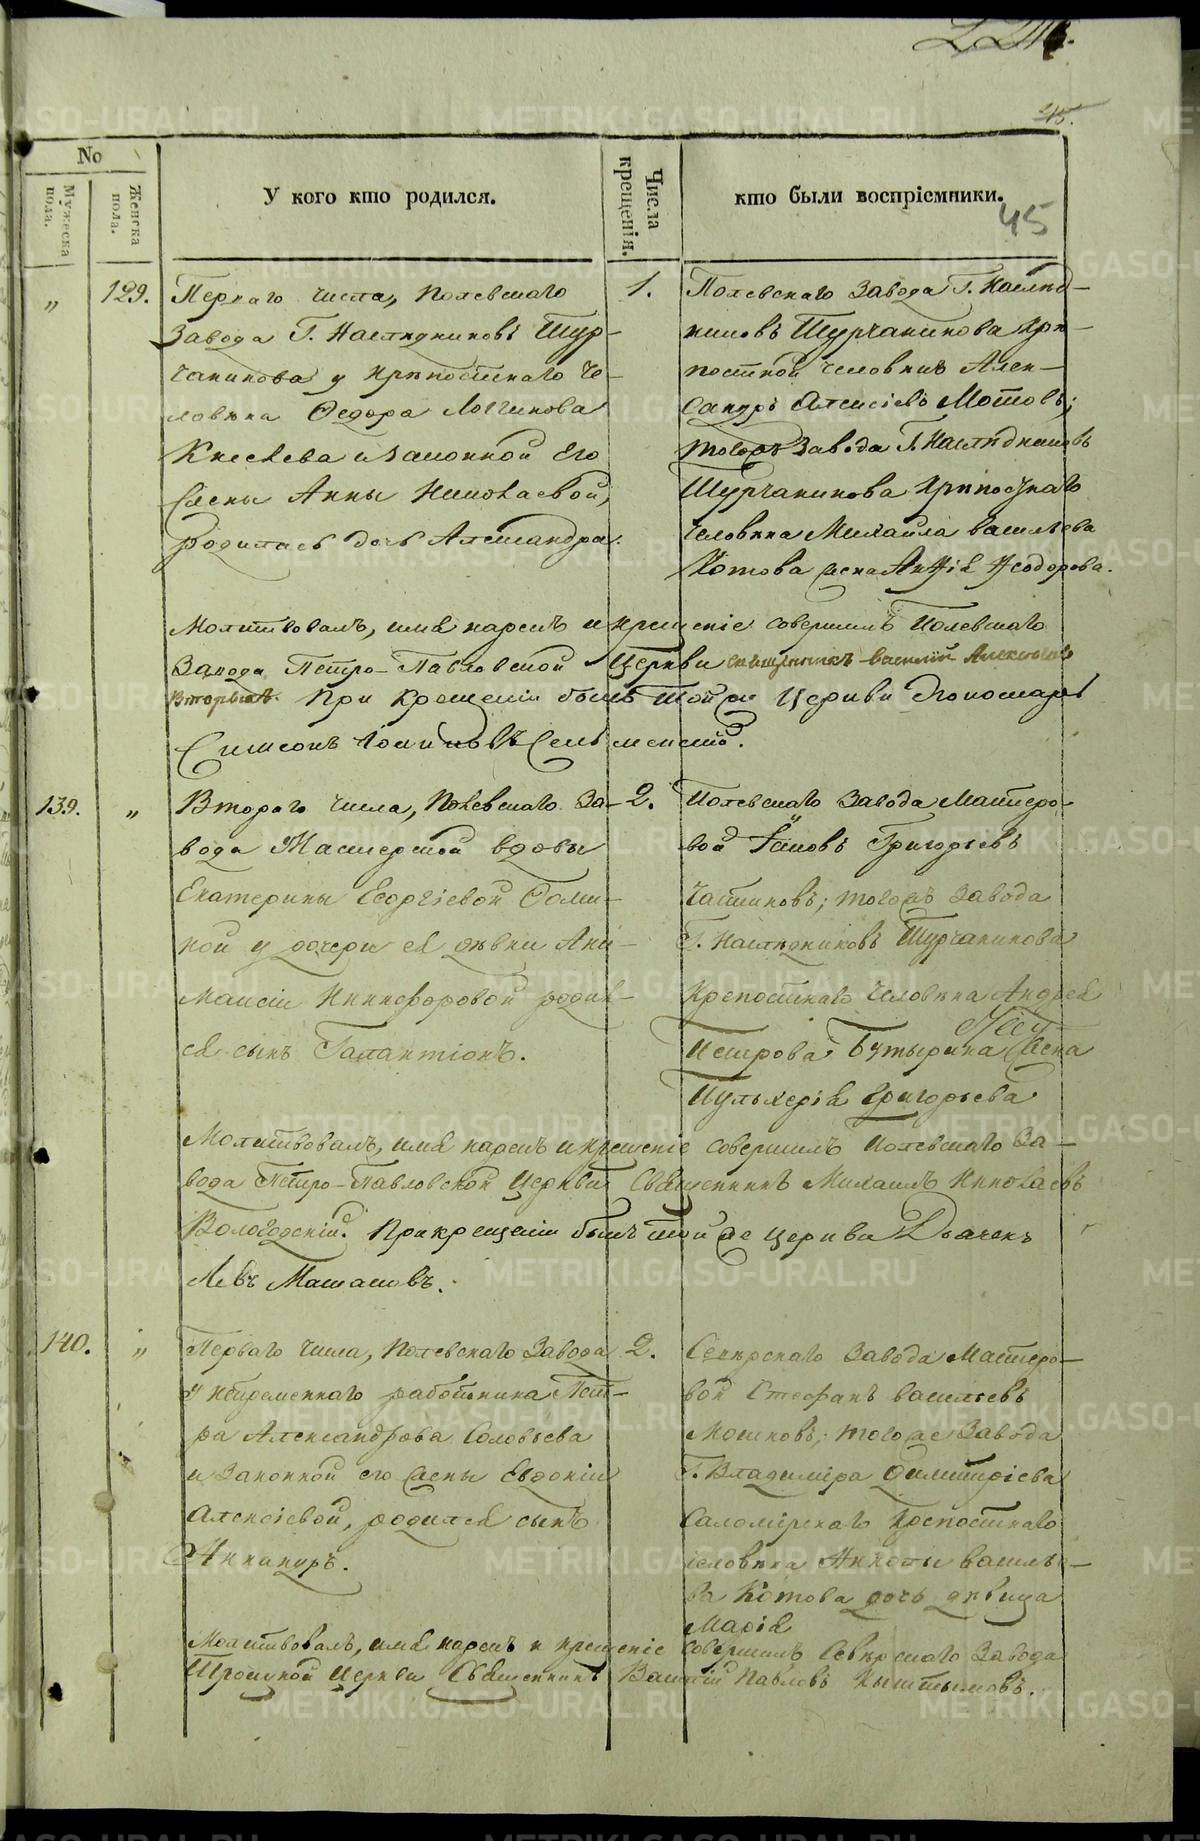 45.
№
Мужеска пола.
Женска пола.
У кого кто родился.
Числа крещенія.
кто были воспріемники.
45
„ 129. Перваго числа, Полевскаго
Завода Г. Наслѣдниковъ Тур-
чанинова у крѣпостнаго че-
ловѣка Ѳедора Логгинова
Киселева и законной его
жены Анны Николаевой,
родилась дочь Александра.
1. Полевскаго Завода Г. Наслѣд-
никовъ Турчанинова крѣ-
постной человѣкъ Алек-
сандръ Алексіевъ Мотовъ;
тогожъ Завода Г. Наслѣдниковъ
Турчанинова крѣпостнаго
человѣка Михайла Васильева
Котова жена Ѳеодорова.
Молитвовалъ, имя нарекъ и крещеніе совершилъ Полевскаго
Завода Петро-Павловской Церкви священникъ Василій Алексѣевъ
При крещеніи былъ той же Церкви Пономарь
Симеонъ
139. „ Втораго числа, Полевскаго За-
вода Мастерской вдовы
Екатерины Георгіевой Ѳоми-
ной у дочери ея дѣвки Ани-
маисіи Никифоровой родил-
ся сынъ Галактіонъ.
2. Полевскаго Завода Мастеро-
вой Іаковъ Григорьевъ
тогожъ Завода
Г. Наслѣдниковъ Турчанинова
Крепостнаго человѣка Андрея
Петрова Бутырина жена
Пульхерія Григорьева
Молитвовалъ, имя нарекъ и крещеніе совершилъ Полевскаго За-
вода Петро-Павловской Церкви Священникъ Михаилъ Николаевъ
Вологодскій. При крещеніи былъ той же церкви Дьячекъ
Левъ
140. „ Перваго числа, Полевскаго Завода
у непременнаго работника Пет-
ра Александрова Соловьева
и законной его жены Евдокіи
Алексіевой, родился сынъ
Никаноръ.
2. Сѣверскаго Завода Мастеро-
вой Стефанъ Васильевъ
тогоже Завода
Г. Владиміра Димитріева
Саломірскаго крепостнаго
человѣка Никиты Василь-
ва Котова дочь дѣвица
Марія
Молитвовалъ, имя нарекъ и крещеніе совершилъ Сѣверскаго Завода
Троицкой Церкви Священникъ Василій Павловъ Кыштымовъ.
METRIKI.GASO-URAL.RU